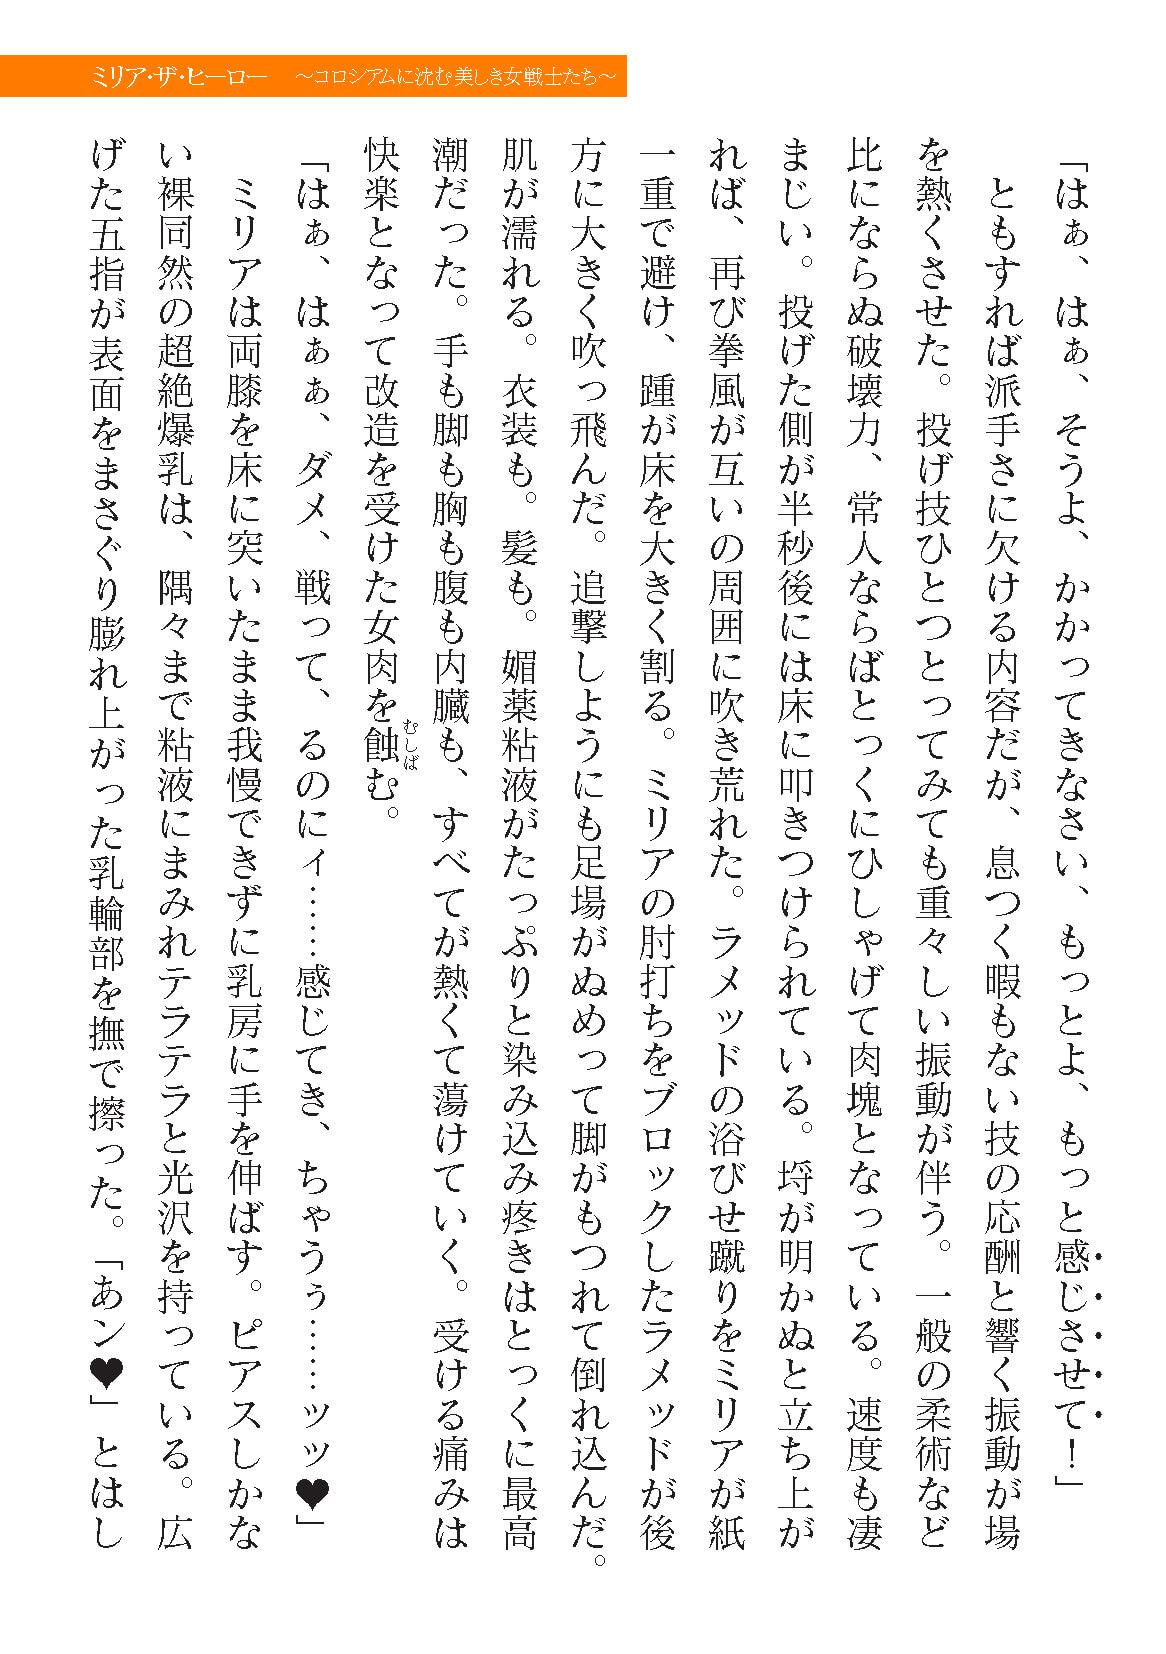 ミリア・ザ・ヒーロー　～コロシアムに沈む美しき女戦士たち～
「はぁ、はぁ、そうよ、かかってきなさい、もっとよ、もっと感じさせて！」
　ともすれば派手さに欠ける内容だが、息つく暇もない技の応酬と響く振動が場
を熱くさせた。投げ技ひとつとってみても重々しい振動が伴う。一般の柔術など
比にならぬ破壊力、常人ならばとっくにひしゃげて肉塊となっている。速度も凄
まじい。投げた側が半秒後には床に叩きつけられている。埒が明かぬと立ち上が
れば、再び拳風が互いの周囲に吹き荒れた。ラメッドの浴びせ蹴りをミリアが紙
一重で避け、踵が床を大きく割る。ミリアの肘打ちをブロックしたラメッドが後
方に大きく吹っ飛んだ。追撃しようにも足場がぬめって脚がもつれて倒れ込んだ。
肌が濡れる。衣装も。髪も。媚薬粘液がたっぷりと染み込み疼きはとっくに最高
潮だった。手も脚も胸も腹も内臓も、すべてが熱くて蕩けていく。受ける痛みは
快楽となって改造を受けた女肉を蝕む。
むしば
「はぁ、はぁぁ、ダメ、戦って、るのにィ……感じてき、ちゃうぅ……ッッ♥」
　ミリアは両膝を床に突いたまま我慢できずに乳房に手を伸ばす。ピアスしかな
い裸同然の超絶爆乳は、隅々まで粘液にまみれテラテラと光沢を持っている。広
げた五指が表面をまさぐり膨れ上がった乳輪部を撫で擦った。「あン♥」とはし